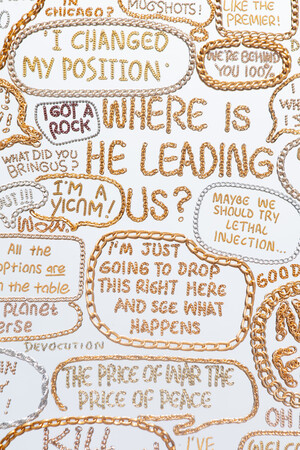 MUGSHOTS!
LIKE THE
PREMIER!
"I CHANGED
MY POSITION"
WE'RE BEHIND
YOU 100%
I GOT A
ROCK
WHERE IS
HE LEADING
US?
WHAT DID YOU
BRING US?
I'M A
VICTIM!
MAYBE WE
SHOULD TRY
LETHAL
INJECTION...
All the
options are
on the table
planet
I'M JUST
GOING TO DROP
THIS RIGHT HERE
AND SEE WHAT
HAPPENS
GOOD
DEVOLUTION
THE PRICE OF WAR THE
PRICE OF PEACE
OH
KILL
I'VE